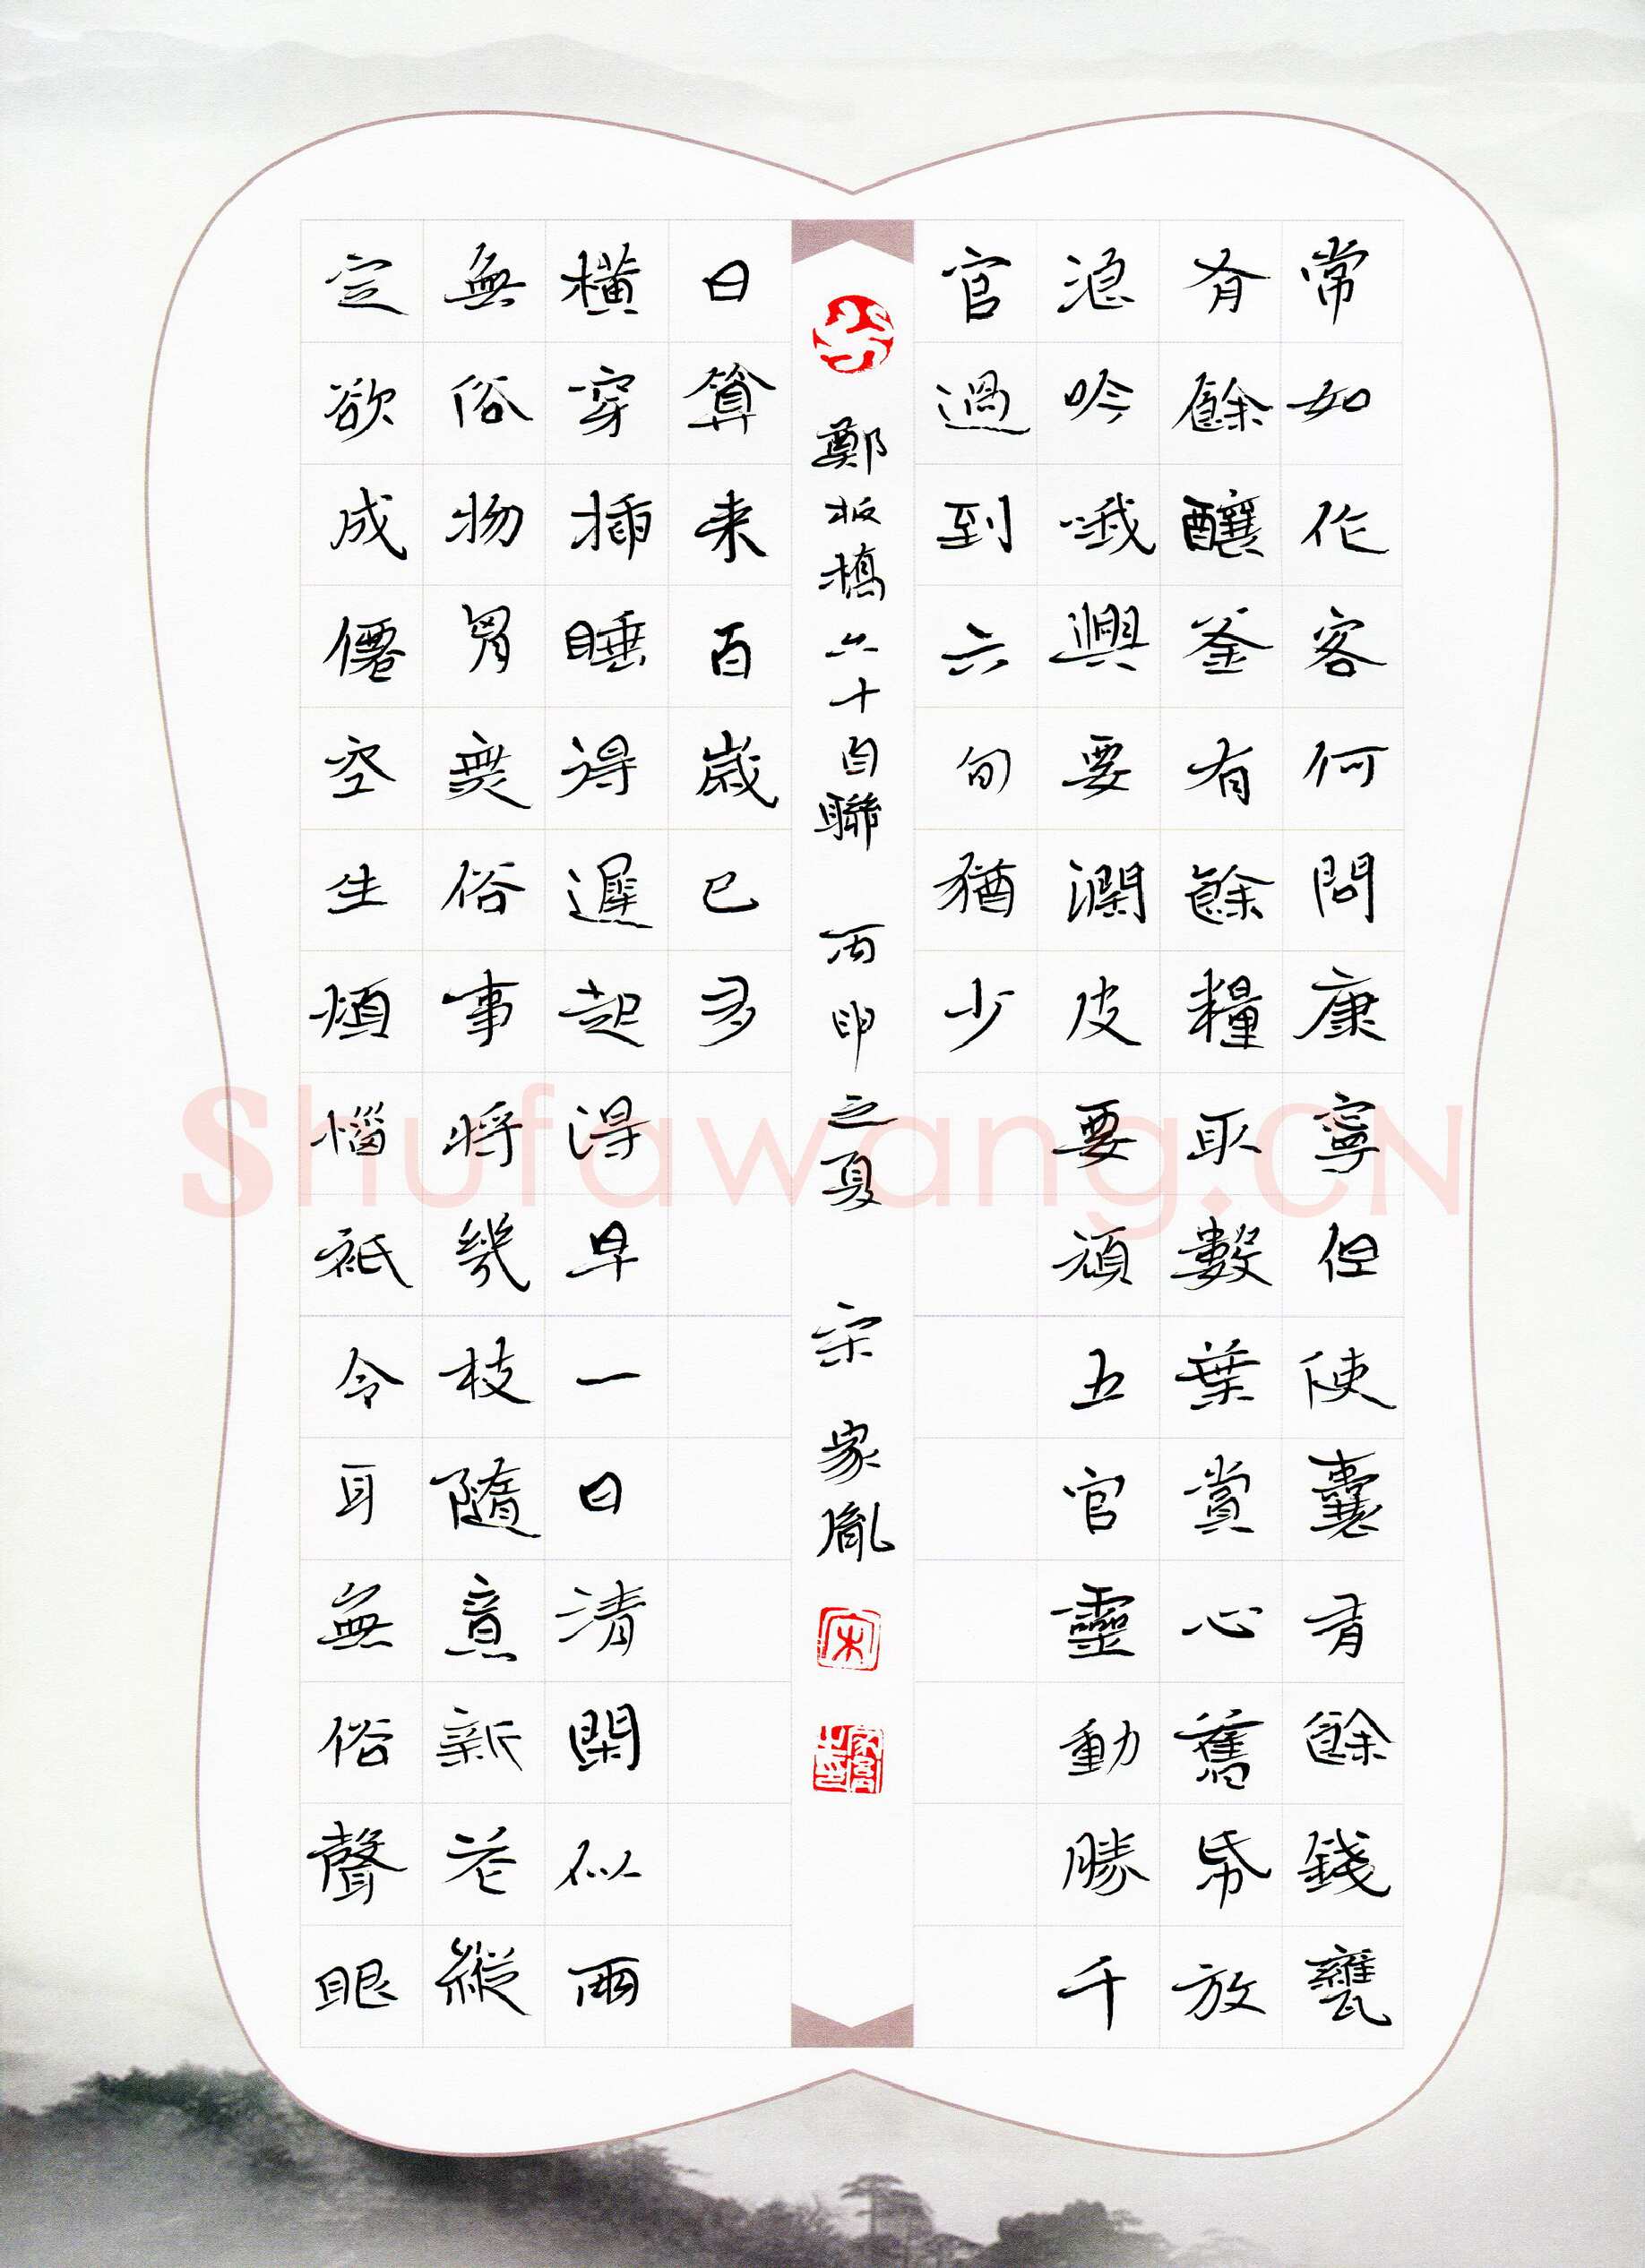 常如作客何問康寧但使囊有餘錢甕
有餘釀釜有餘糧取數葉賞心舊帋放
浪吟哦興要濶皮要頑五官靈動勝千
官過到六旬猶少
定欲成僊空生煩惱祇令耳無俗聲眼
無俗物胷無俗事將幾枝隨意新花縱
橫穿插睡得遲起得早一日清閑似兩
日算来百歲已多
鄭板橋六十自聯 丙申之夏 宋家胤
宋
Shufawang.CN